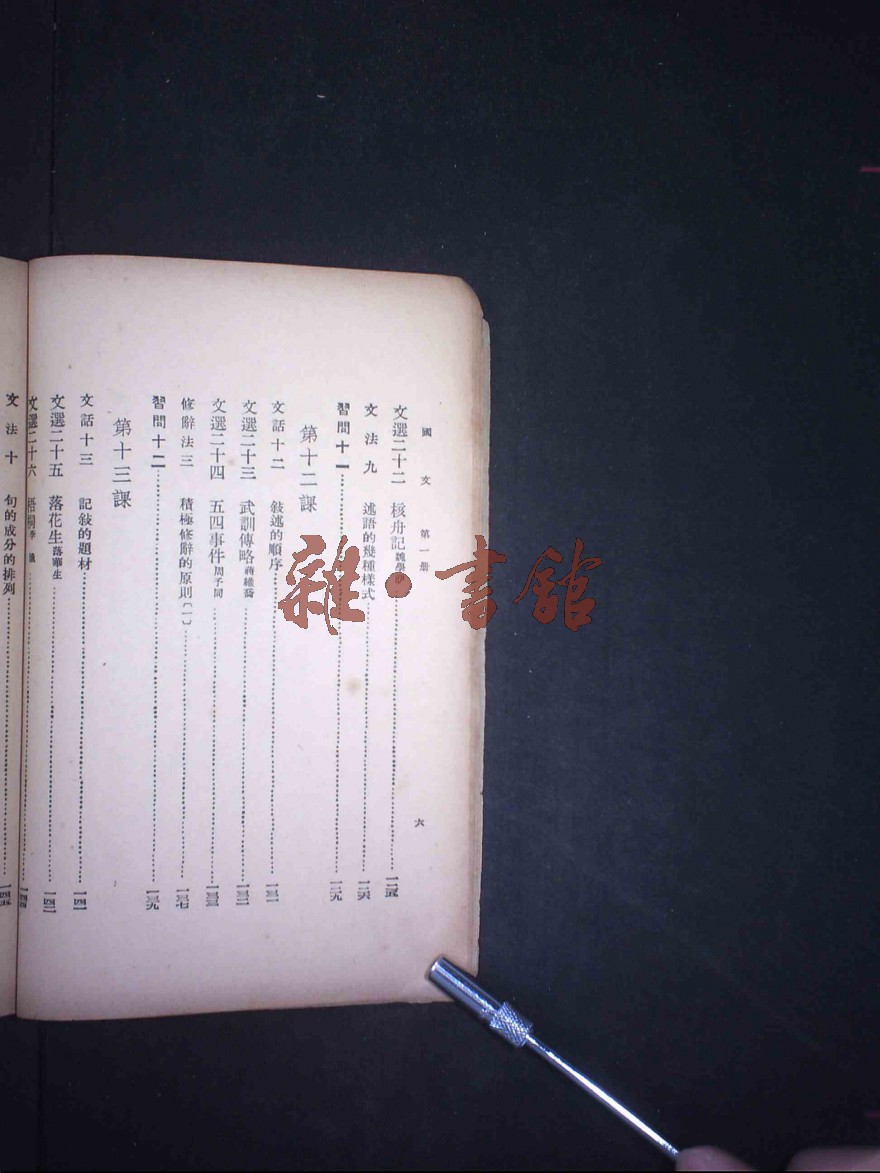 國文 第一册 六
文選二十二 核舟記 魏學 一二五
文法九 述語的幾種樣式 一二六
習問十一 一二九
第十二課
文話十二 敍述的順序 一三一
文選二十三 武訓傳略 蔣維喬 一三二
文選二十四 五四事件 周予同 一三三
修辭法三 積極修辭的原則(一) 一三七
習問十二 一三九
第十三課
文話十三 記敍的題材 一四一
文選二十五 落花生 落華生 一四二
文選二十六 梧桐 李漁 一四四
文法十 句的成分的排列 一四五
雜·書館